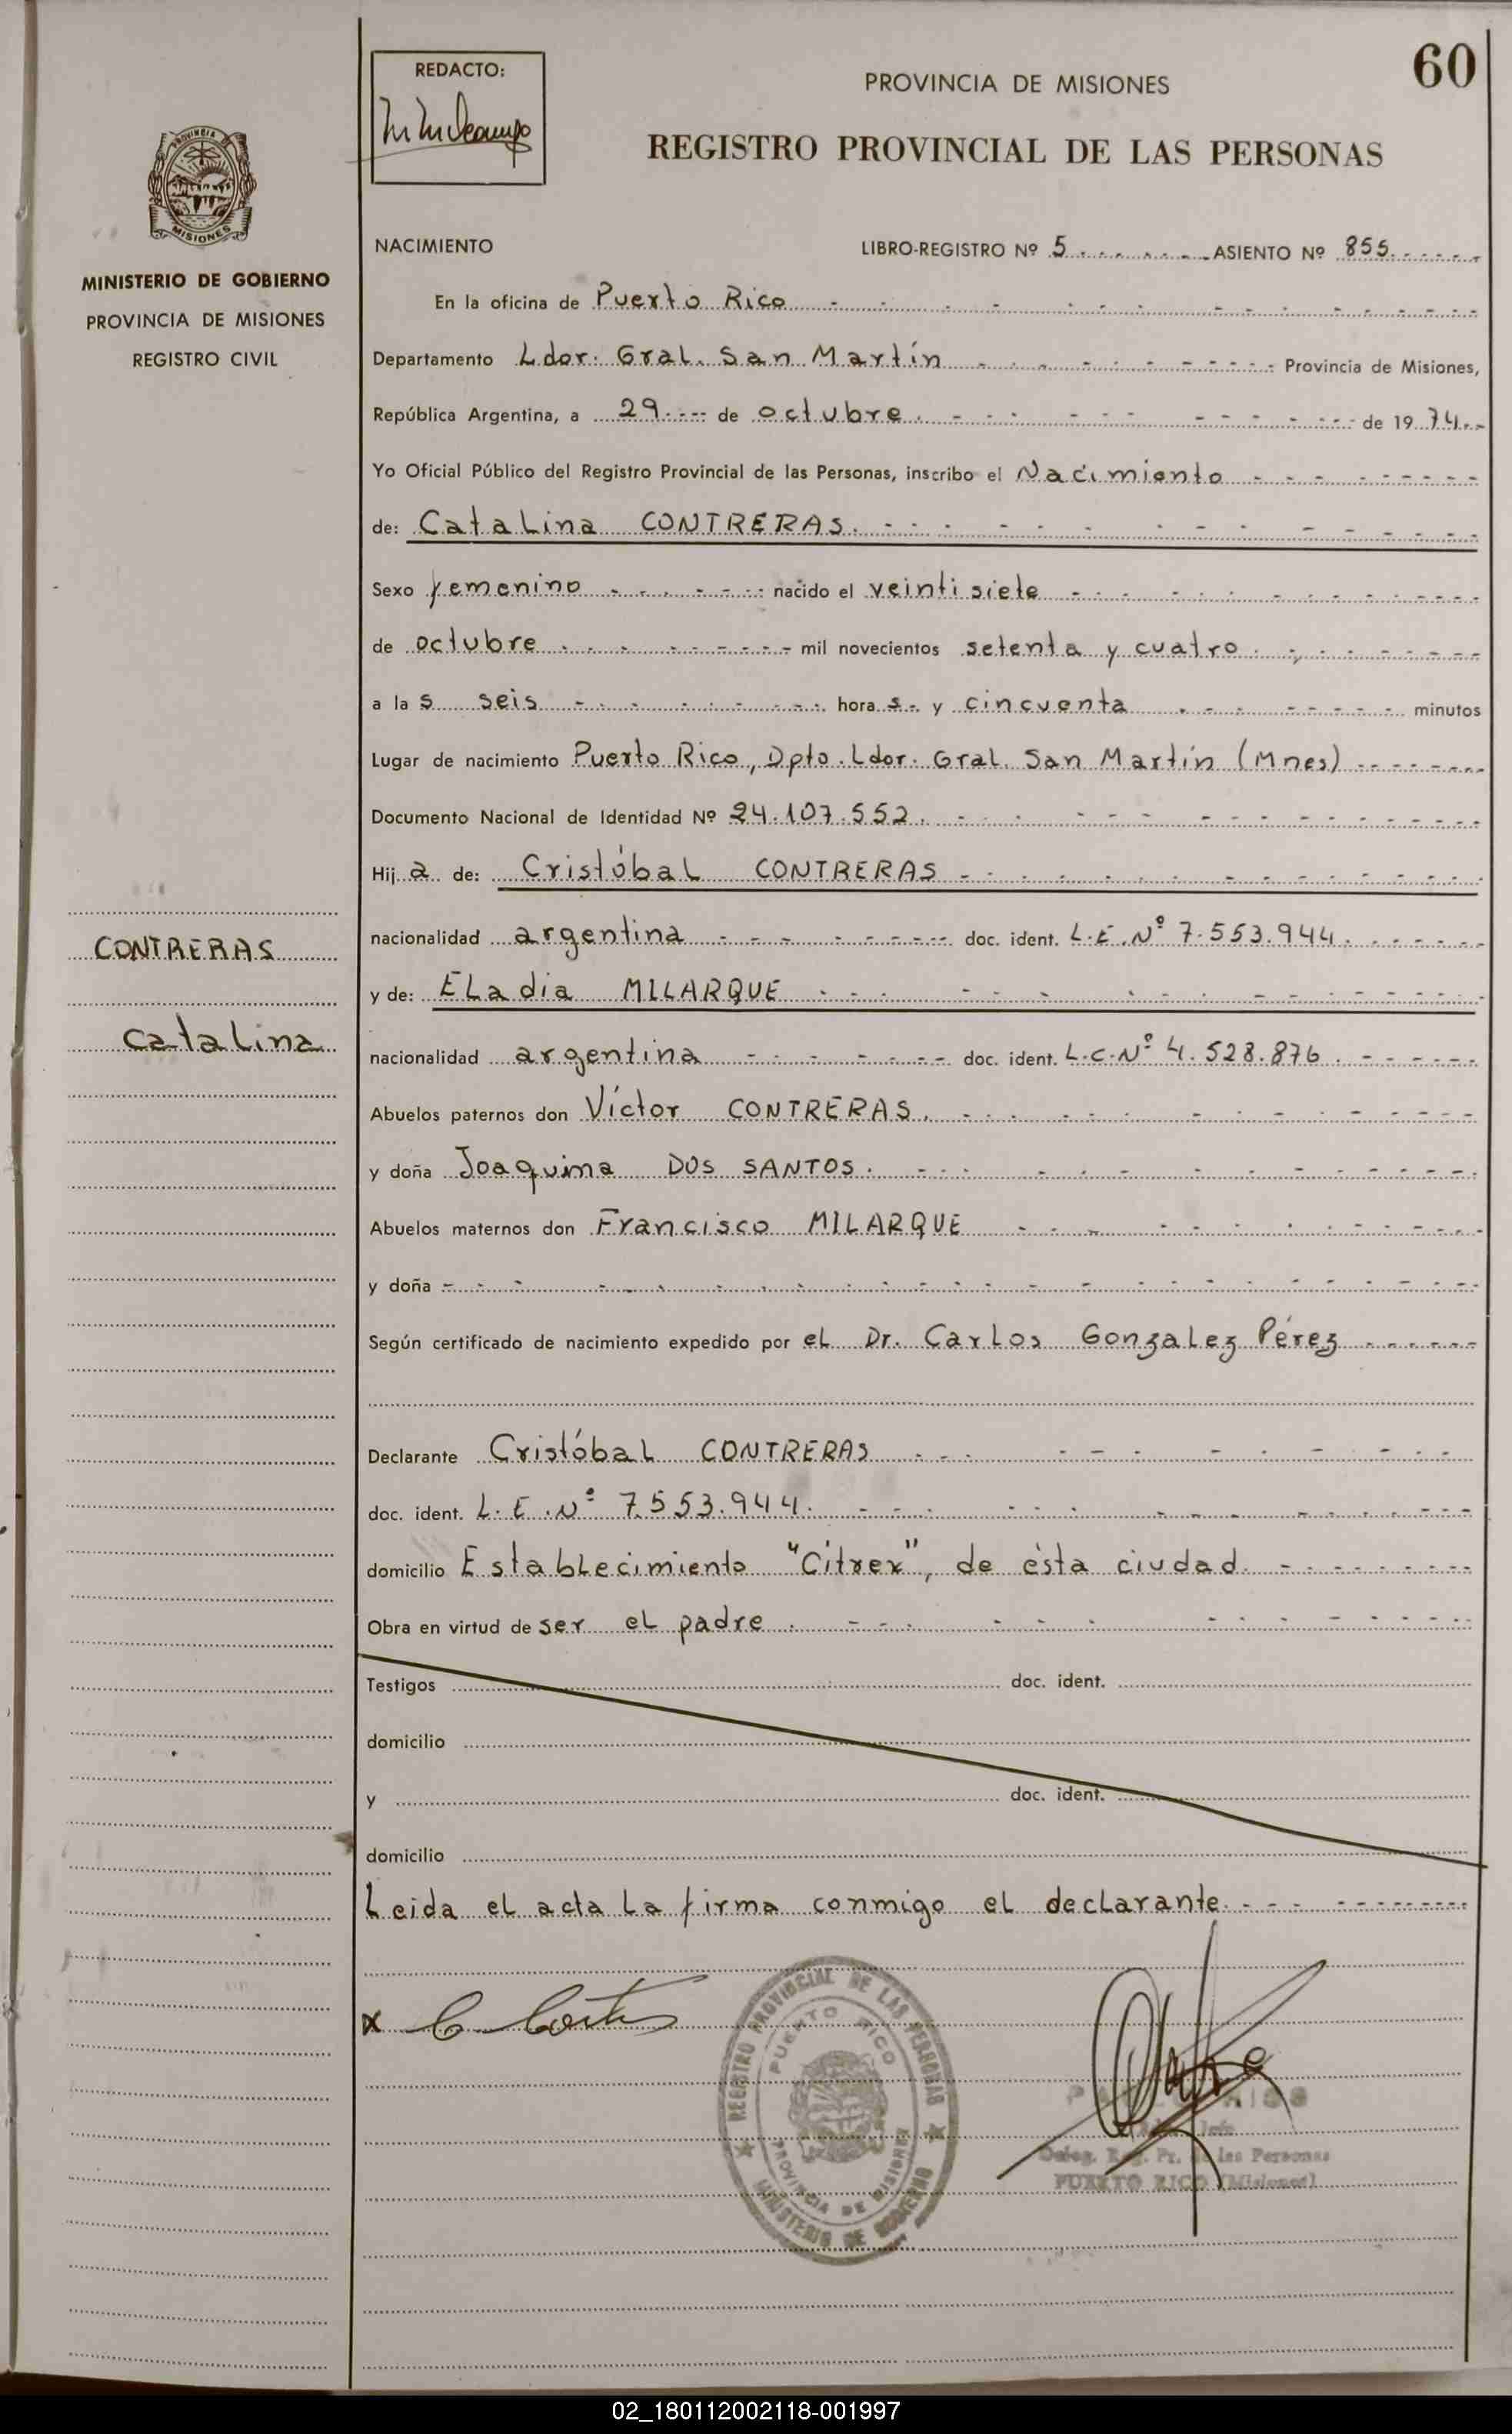 60
REDACTO:
PROVINCIA DE MISIONES
REGISTRO PROVINCIAL DE LAS PERSONAS
PROVINCIA
MISIONES
MINISTERIO DE GOBIERNO
PROVINCIA DE MISIONES
REGISTRO CIVIL
NACIMIENTO LIBRO-REGISTRO Nº 5 ASIENTO Nº 855.
En la oficina de Puerto Rico
Departamento Ldor. Gral. San Martín Provincia de Misiones,
República Argentina, a 29 de octubre. de 19 74
Yo Oficial Público del Registro Provincial de las Personas, inscribo el Nacimiento
de: Catalina CONTRERAS.
Sexo femenino nacido el veintisiete
de octubre mil novecientos setenta y cuatro.
a la s seis hora s y cincuenta minutos
Lugar de nacimiento Puerto Rico, Dpto. Ldor. Gral. San Martín (Mnes)
Documento Nacional de Identidad Nº 24.107.552.
Hij a de: Cristóbal CONTRERAS
nacionalidad argentina doc. ident. L.E. Nº 7.553.944.
y de: Eladia MILARQUE
nacionalidad argentina doc. ident. L.C. Nº 4.528.876.
Abuelos paternos don Víctor CONTRERAS.
y doña Joaquina DOS SANTOS.
Abuelos maternos don Francisco MILARQUE
y doña
Según certificado de nacimiento expedido por el Dr. Carlos Gonzalez Pérez
Declarante Cristóbal CONTRERAS
doc. ident. L.E. Nº 7.553.944.
domicilio Establecimiento "Citrex", de ésta ciudad.
Obra en virtud de ser el padre.
Testigos doc. ident.
domicilio
y doc. ident.
domicilio
Leida el acta la firma conmigo el declarante.
CONTRERAS
Catalina
x
REGISTRO PROVINCIAL DE LAS PERSONAS
PUERTO RICO
PROVINCIA DE MISIONES
MINISTERIO DE GOBIERNO
Deleg. Reg. Pr. de las Personas
PUERTO RICO (Misiones)
02_180112002118-001997